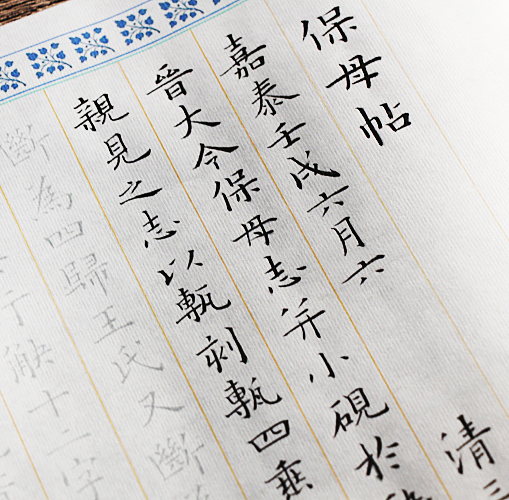 保母帖
嘉泰壬戌六月六 清三
晉大令保母志并小硯於
親見之志以甎刻甎四垂
斷為四歸王氏又斷
十二字